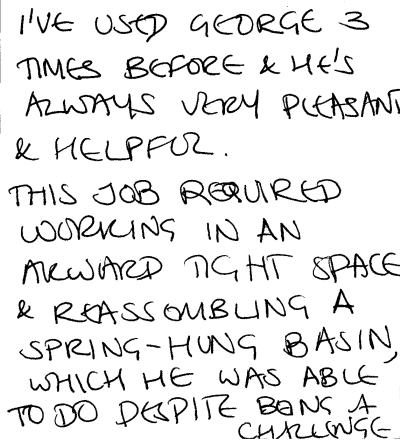 I'VE USED GEORGE 3
TIMES BEFORE & HE'S
ALWAYS VERY PLEASANT
& HELPFUL.
THIS JOB REQUIRED
WORKING IN AN
AKWARD TIGHT SPACE
& REASSOMBLING A
SPRING-HUNG BASIN,
WHICH HE WAS ABLE
TO DO DESPITE BEING A
CHALLENGE